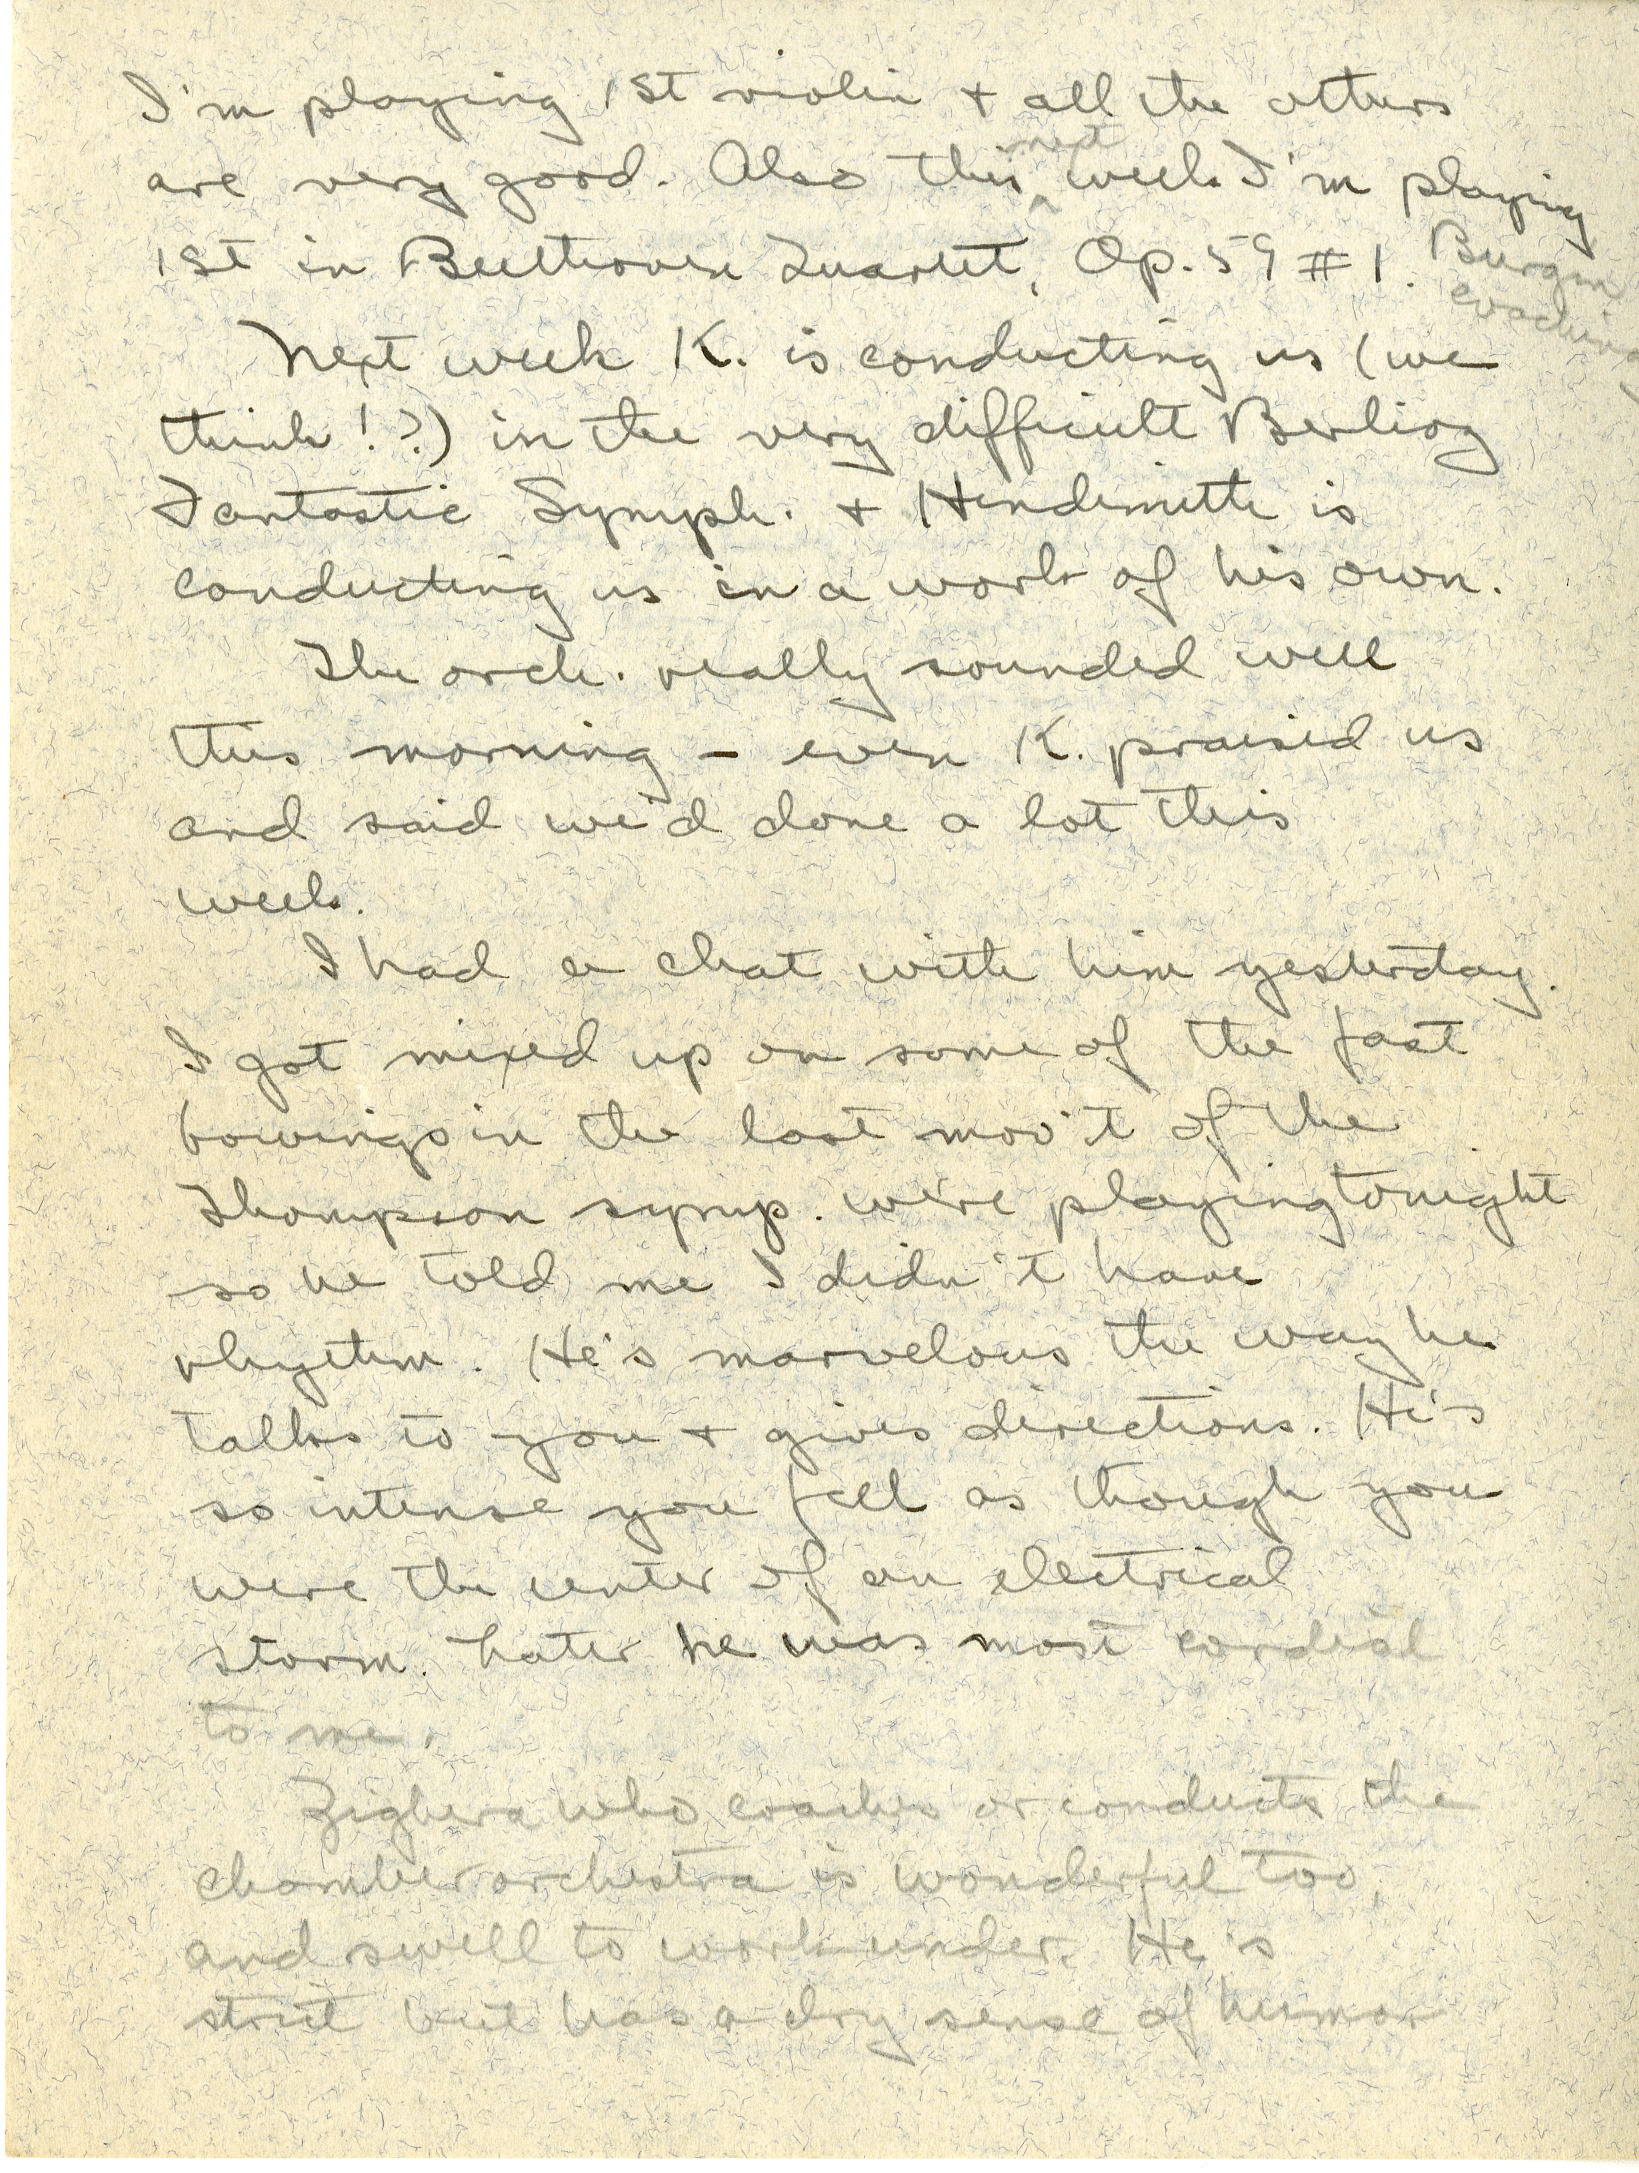 I'm playing 1st violin + all the others
are very good. Also this ^next week I'm playing
1st in Beethoven Quartet, Op. 59 #1. Burgin
coaching
Next week K. is conducting us (we
think!?) in the very difficult Berlioz
Fantastic Symph. + Hindemith is
conducting us in a work of his own.
The orch. really sounded well
this morning – even K. praised us
and said we'd done a lot this
week.
I had a chat with him yesterday.
I got mixed up on some of the fast
bowings in the last mov't of the
Thompson symp. we're playing tonight
so he told me I didn't have
rhythm. He's marvelous the way he
talks to you + gives directions. He's
so intense you feel as though you
were the center of an electrical
storm. Later he was most cordial
to me.
Zighera who coaches or conducts the
chamber orchestra is wonderful too,
and swell to work under. He's
strict but has a dry sense of humor